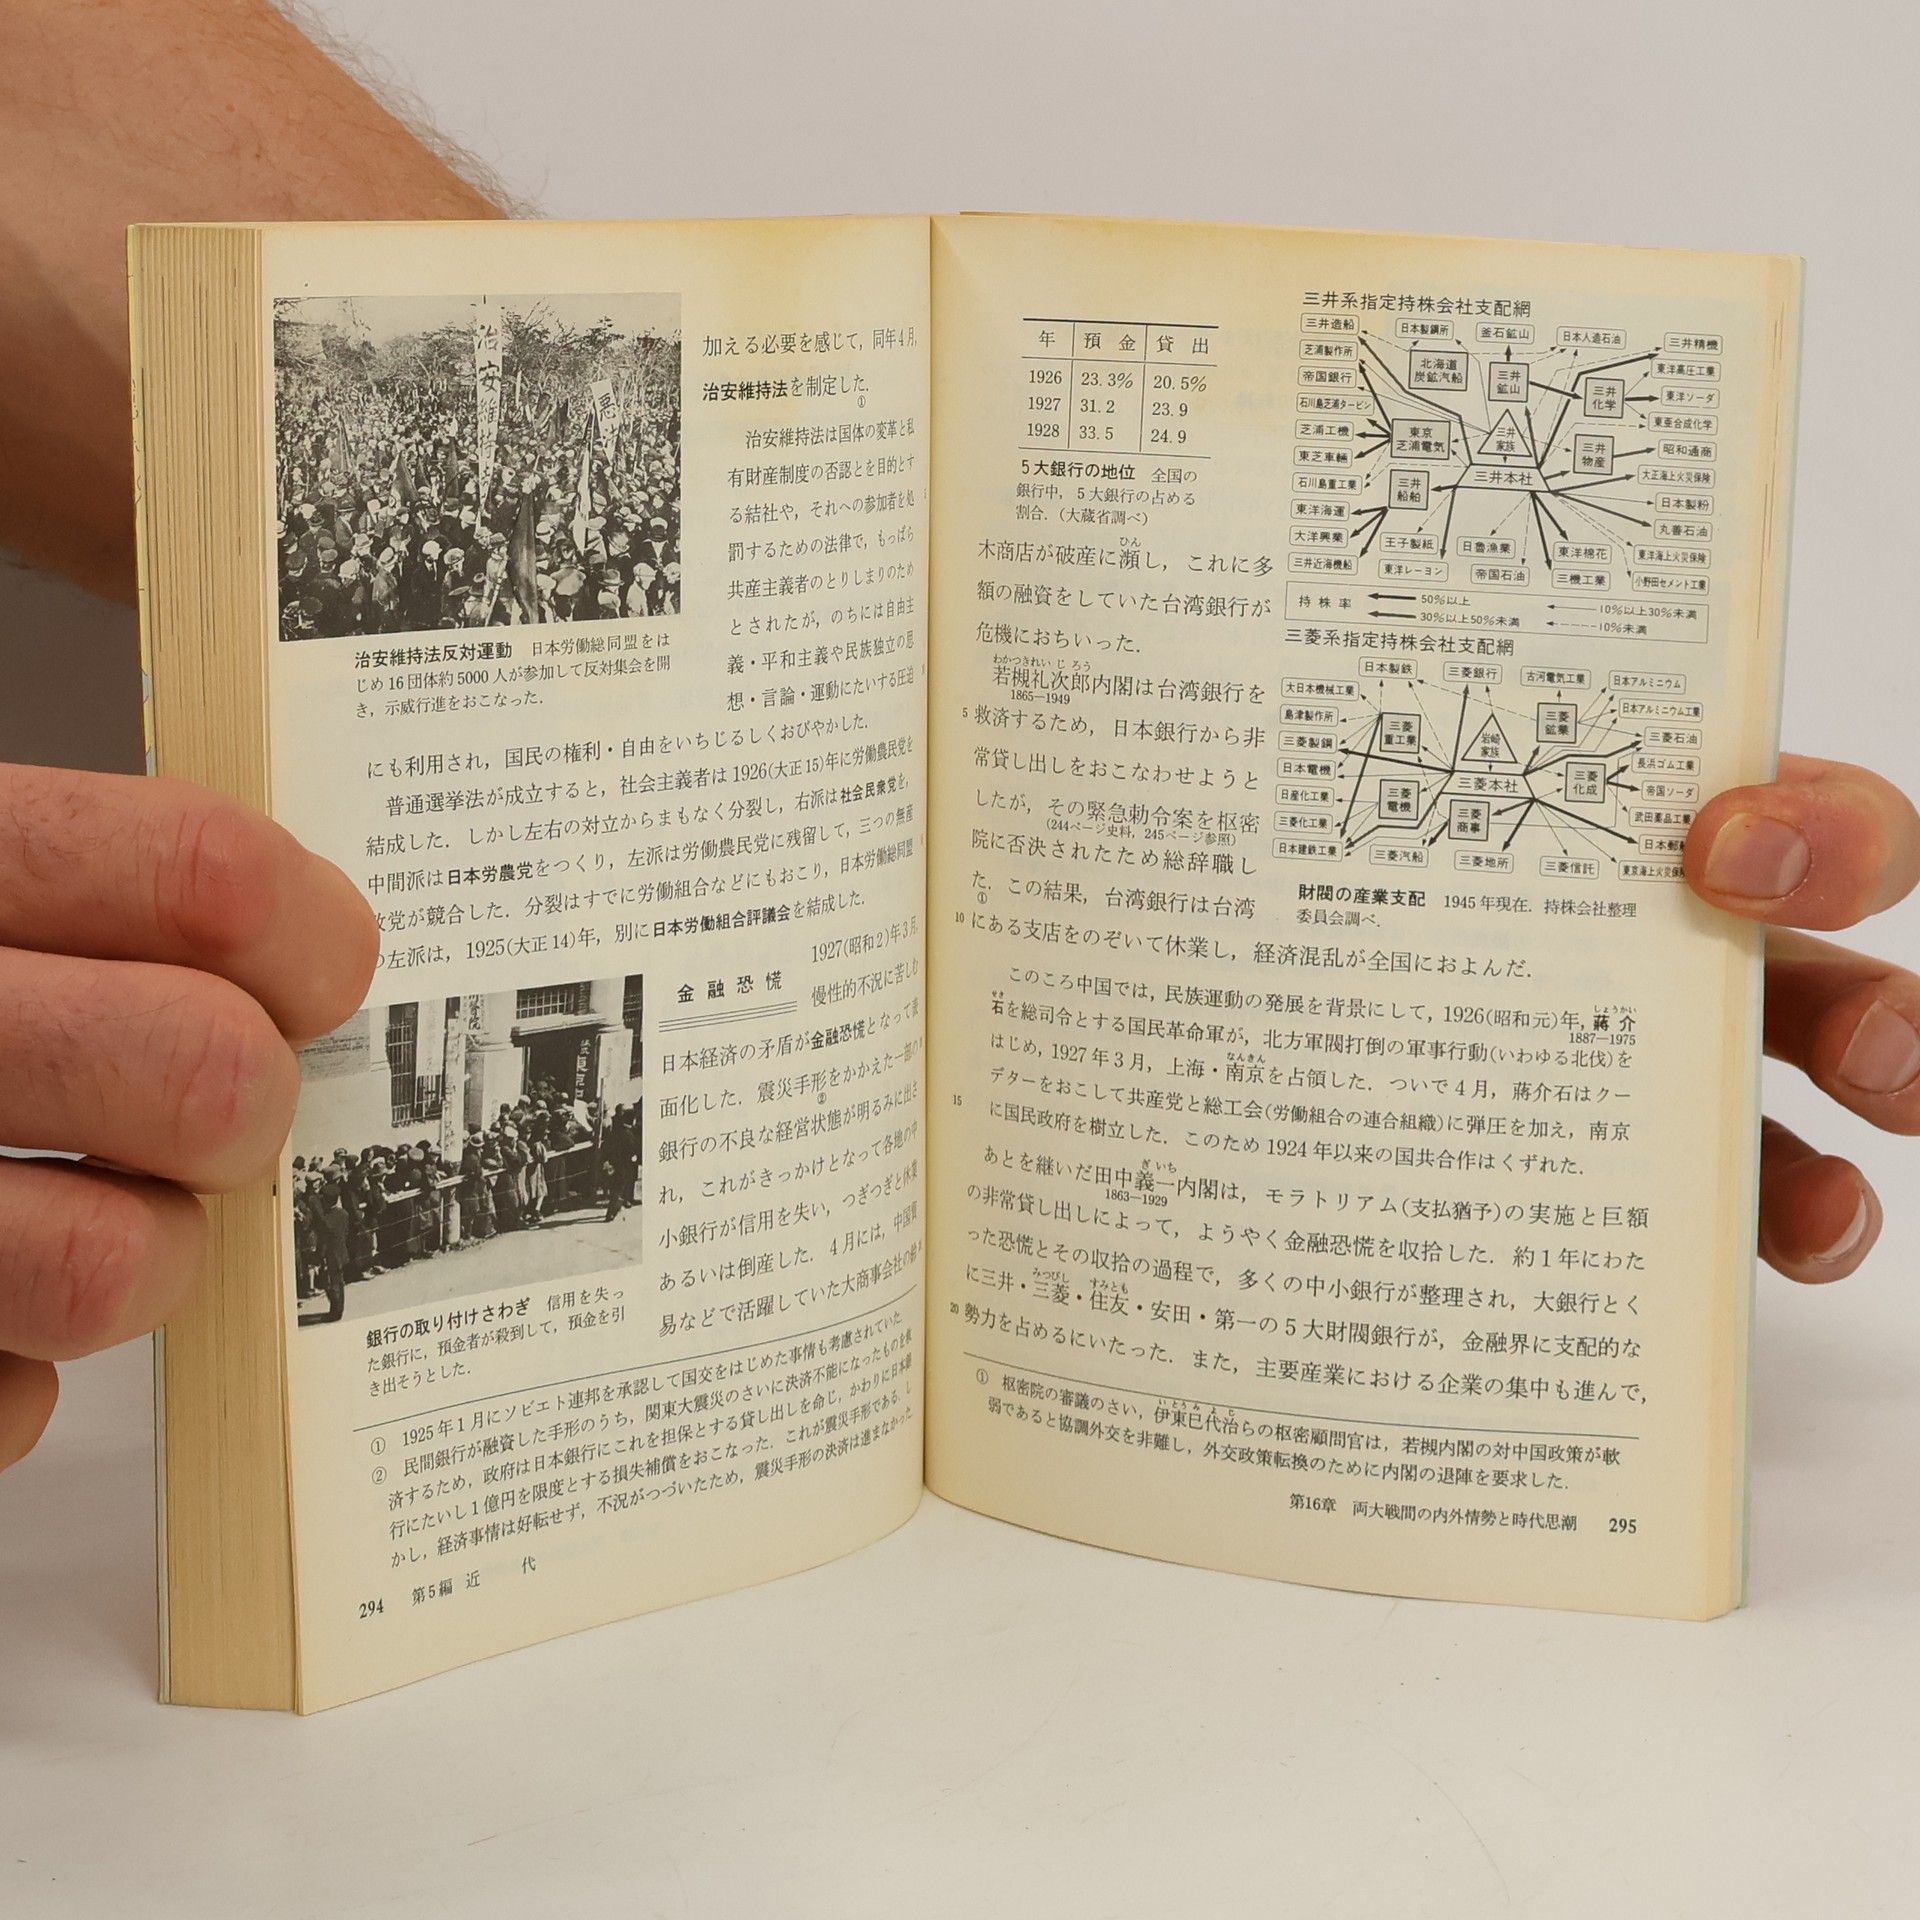 治安維持法
悪法
治安維持法反対運動　日本労働総同盟をは
じめ16団体約5000人が参加して反対集会を開
き，示威行進をおこなった．
加える必要を感じて，同年4月，
治安維持法を制定した．
①
治安維持法は国体の変革と私
有財産制度の否認とを目的とす
る結社や，それへの参加者を処
罰するための法律で，もっぱら
共産主義者のとりしまりのため
とされたが，のちには自由主
義・平和主義や民族独立の思
想・言論・運動にたいする圧迫
にも利用され，国民の権利・自由をいちじるしくおびやかした．
普通選挙法が成立すると，社会主義者は1926(大正15)年に労働農民党を
結成した．しかし左右の対立からまもなく分裂し，右派は社会民衆党を，
中間派は日本労農党をつくり，左派は労働農民党に残留して，三つの無産
政党が競合した．分裂はすでに労働組合などにもおこり，日本労働総同盟
の左派は，1925(大正14)年，別に日本労働組合評議会を結成した．
金融恐慌
1927(昭和2)年3月，
慢性的不況に苦しむ
日本経済の矛盾が金融恐慌となって表
面化した．震災手形をかかえた一部の
②
銀行の不良な経営状態が明るみに出さ
れ，これがきっかけとなって各地の中
小銀行が信用を失い，つぎつぎと休業
あるいは倒産した．4月には，中国貿
易などで活躍していた大商事会社の鈴
銀行の取り付けさわぎ　信用を失っ
た銀行に，預金者が殺到して，預金を引
き出そうとした．
①　1925年1月にソビエト連邦を承認して国交をはじめた事情も考慮されていた．
②　民間銀行が融資した手形のうち，関東大震災のさいに決済不能になったものを救
済するため，政府は日本銀行にこれを担保とする貸し出しを命じ，かわりに日本銀
行にたいし1億円を限度とする損失補償をおこなった．これが震災手形である．し
かし，経済事情は好転せず，不況がつづいたため，震災手形の決済は進まなかった
294　第5編　近　代
年　預金　貸出
1926　23.3%　20.5%
1927　31.2　23.9
1928　33.5　24.9
5大銀行の地位　全国の
銀行中，5大銀行の占める
割合．(大蔵省調べ)
三井系指定持株会社支配網
三井造船　日本製鋼所　釜石鉱山　日本人造石油　三井精機
芝浦製作所　北海道炭鉱汽船　三井鉱山　三井化学　東洋高圧工業
帝国銀行　東洋ソーダ
石川島芝浦タービン　東亜合成化学
芝浦工機　東京芝浦電気　三井家族　三井物産　昭和通商
東芝車輛　三井本社　大正海上火災保険
石川島重工業　三井船舶　日本製粉
東洋海運　丸善石油
大洋興業　王子製紙　日魯漁業　東洋棉花　東洋海上火災保険
三井近海機船　東洋レーヨン　帝国石油　三機工業　小野田セメント工業
持株率　50%以上　10%以上30%未満
30%以上50%未満　10%未満
三菱系指定持株会社支配網
日本製鉄　三菱銀行　古河電気工業　日本アルミニウム
大日本機械工業　日本アルミニウム工業
島津製作所　三菱重工業　岩崎家族　三菱鉱業　三菱石油
三菱製鋼　長浜ゴム工業
日本電機　三菱本社　三菱化成　帝国ソーダ
日産化工業　三菱電機　武田薬品工業
三菱化工業　三菱商事　日本郵船
日本建鉄工業　三菱汽船　三菱地所　三菱信託　東京海上火災保険
財閥の産業支配　1945年現在．持株会社整理
委員会調べ．
木商店が破産に瀕し，これに多
ひん
額の融資をしていた台湾銀行が
危機におちいった．
わかつきれいじろう
若槻礼次郎内閣は台湾銀行を
1865—1949
5 救済するため，日本銀行から非
常貸し出しをおこなわせようと
したが，その緊急勅令案を枢密
(244ページ史料，245ページ参照)
院に否決されたため総辞職し
た．この結果，台湾銀行は台湾
①
10 にある支店をのぞいて休業し，経済混乱が全国におよんだ．
このころ中国では，民族運動の発展を背景にして，1926(昭和元)年，蔣介
しょうかい
1887—1975
せき
石を総司令とする国民革命軍が，北方軍閥打倒の軍事行動(いわゆる北伐)を
はじめ，1927年3月，上海・南京を占領した．ついで4月，蔣介石はクー
なんきん
デターをおこして共産党と総工会(労働組合の連合組織)に弾圧を加え，南京
15 に国民政府を樹立した．このため1924年以来の国共合作はくずれた．
あとを継いだ田中義一内閣は，モラトリアム(支払猶予)の実施と巨額
ぎいち
1863—1929
の非常貸し出しによって，ようやく金融恐慌を収拾した．約1年にわた
った恐慌とその収拾の過程で，多くの中小銀行が整理され，大銀行とく
に三井・三菱・住友・安田・第一の5大財閥銀行が，金融界に支配的な
みつびし　すみとも
20 勢力を占めるにいたった．また，主要産業における企業の集中も進んで，
①　枢密院の審議のさい，伊東巳代治らの枢密顧問官は，若槻内閣の対中国政策が軟
いとうみよじ
弱であると協調外交を非難し，外交政策転換のために内閣の退陣を要求した．
第16章　両大戦間の内外情勢と時代思潮　295